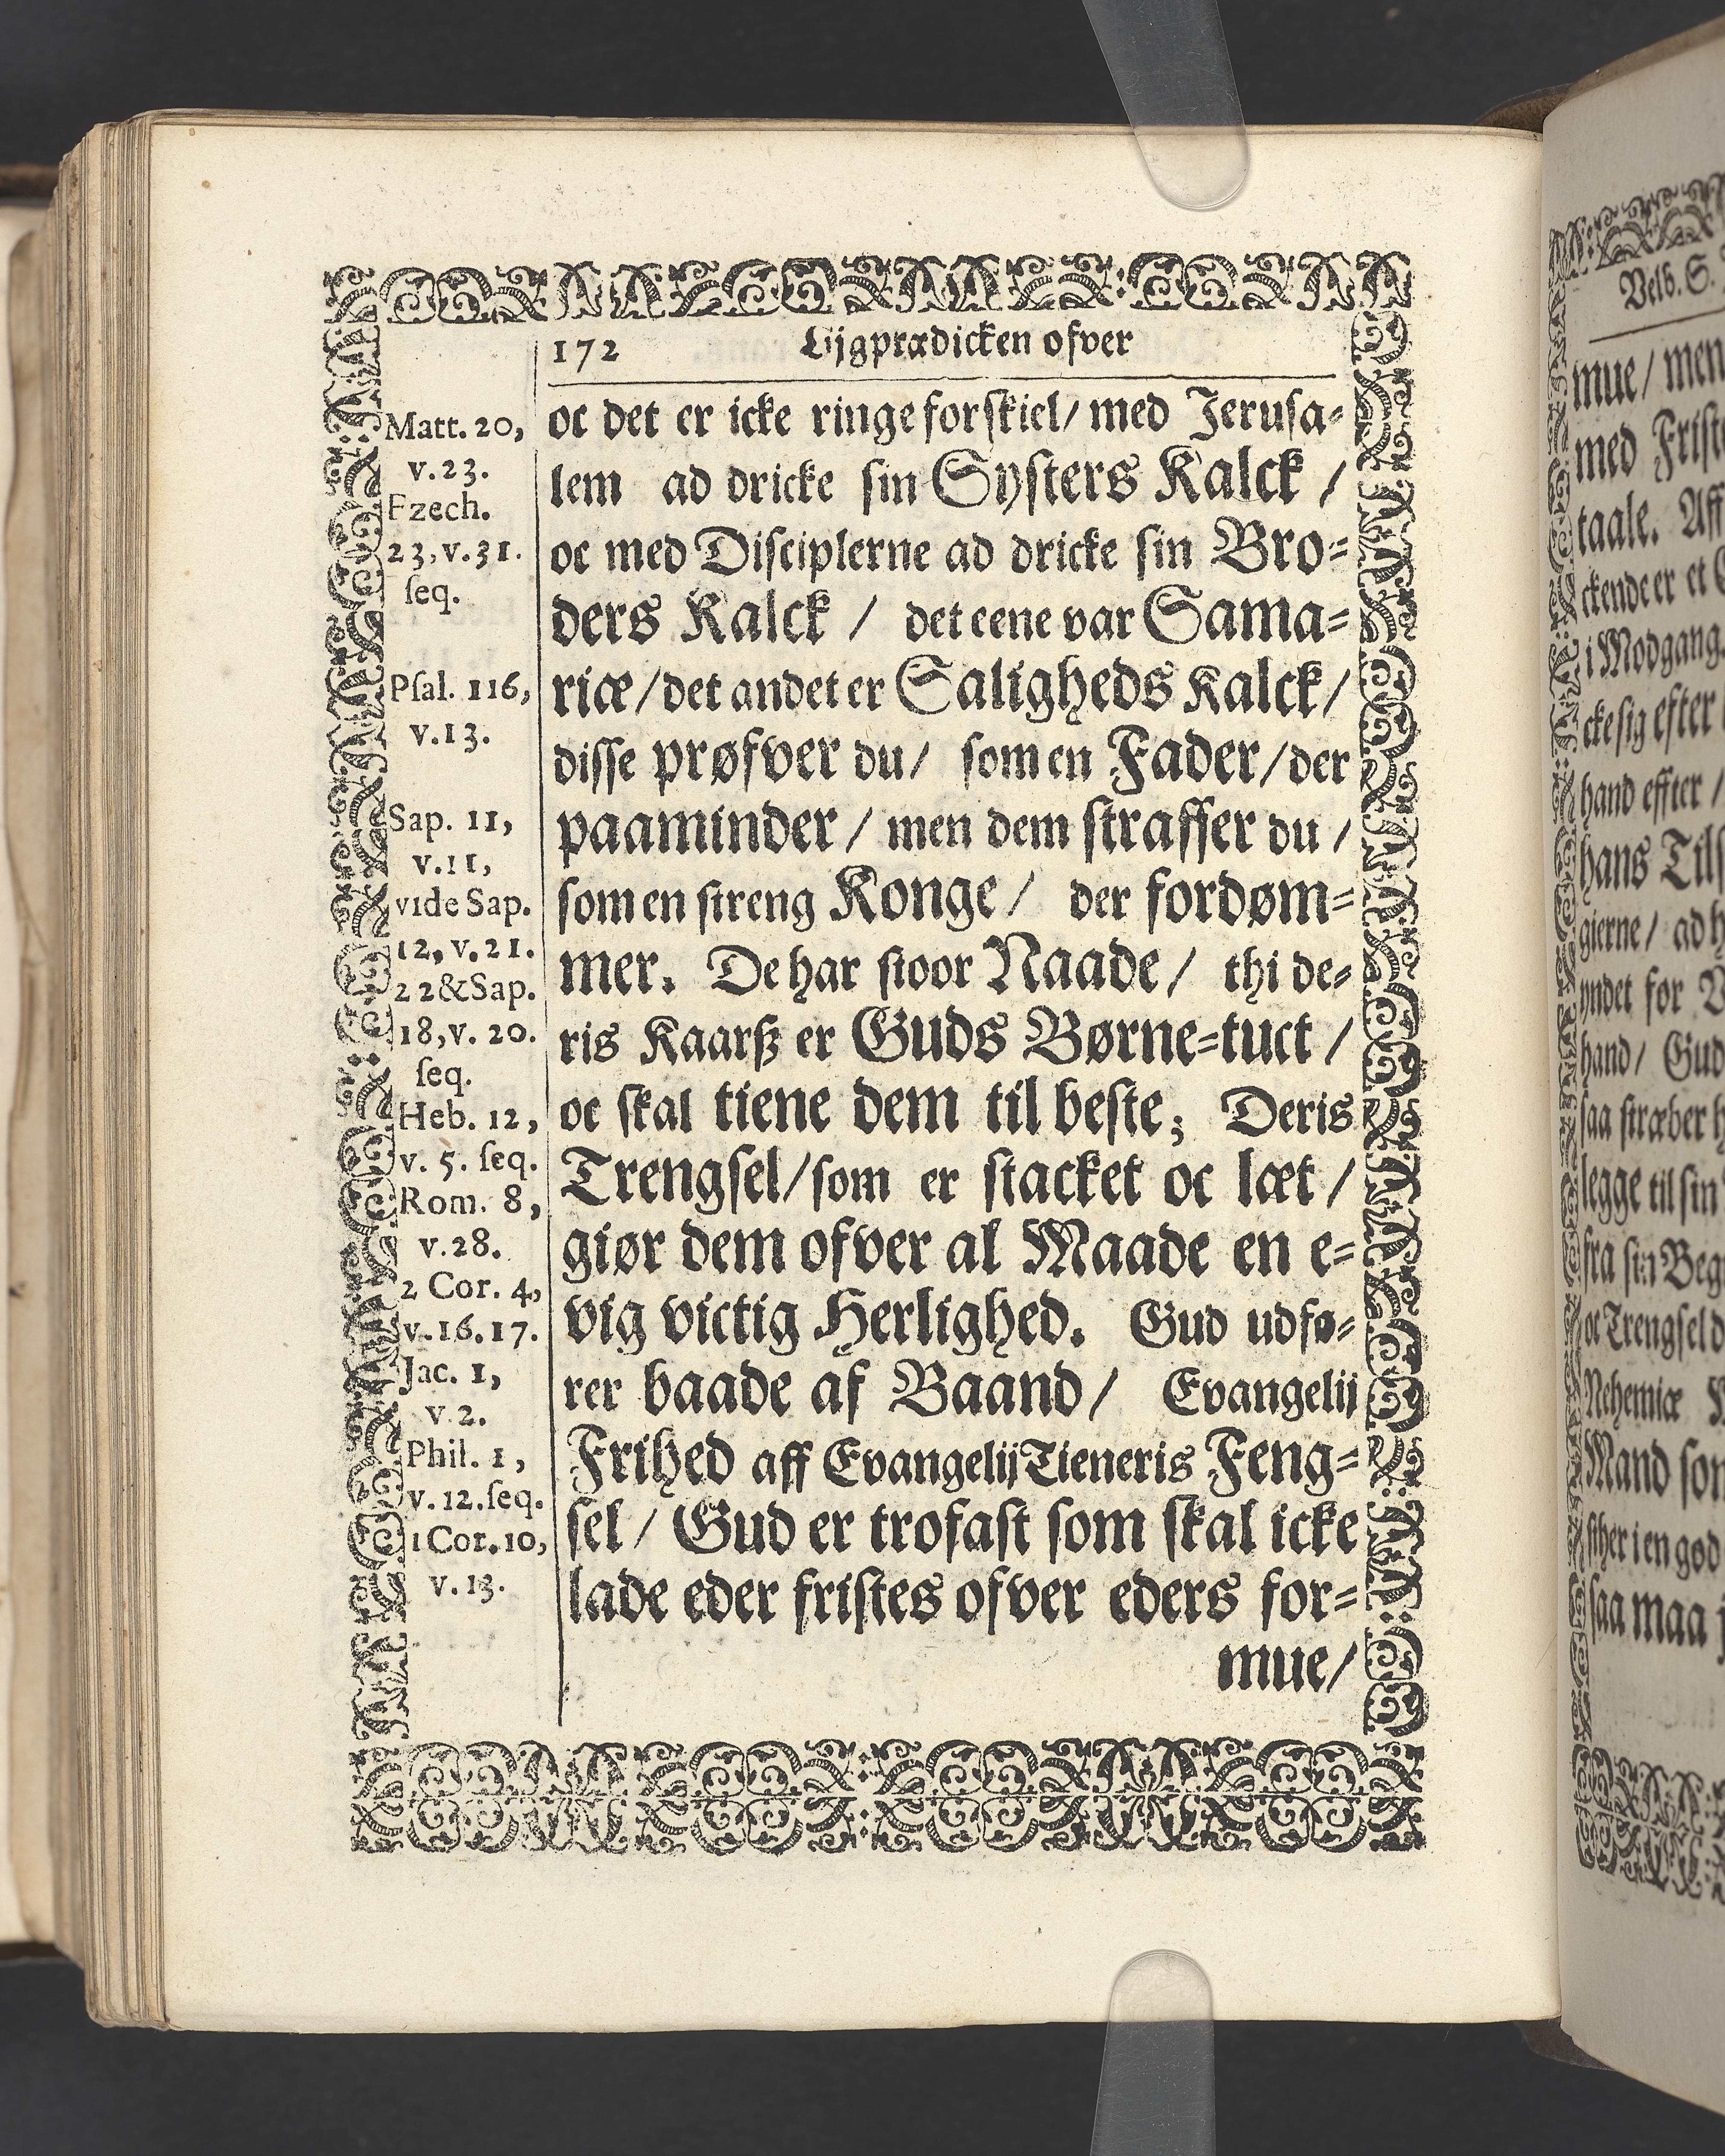 172 Ligprædicken ofver
Matt. 20,
v. 23.
Ezech.
23, v. 31.
ſeq.
Pſal. 116,
v. 13.
Sap. 11,
v. 11,
vide Sap.
12, v. 21.
22 & Sap.
18, v. 20.
ſeq.
Heb. 12,
v. 5. ſeq.
Rom. 8,
v. 28.
2 Cor. 4,
v. 16. 17.
Jac. 1,
v. 2.
Phil. 1,
v. 12. ſeq.
1 Cor. 10,
v. 13.
oc det er icke ringe forſkiel/ med Jeruſa-
lem ad dricke ſin Syſters Kalck /
oc med Diſciplerne ad dricke ſin Bro-
ders Kalck / det eene var Sama-
riæ/ det andet er Saligheds Kalck/
diſſe prøfver du/ ſom en Fader/ der
paaminder / men dem ſtraffer du /
ſom en ſtreng Konge / der fordøm-
mer. De har ſtoor Naade / thi de-
ris Kaarß er Guds Børne-tuct /
oc ſkal tiene dem til beſte; Deris
Trengſel/ ſom er ſtacket oc læt /
giør dem ofver al Maade en e-
vig victig Herlighed. Gud udfø-
rer baade af Baand/ Evangelij
Frihed aff Evangelij Tieneris Feng-
ſel / Gud er trofaſt ſom ſkal icke
lade eder friſtes ofver eders for-
mue/
Velb. S.
mue/ men
med Friſt
taale. Aff
ckende er et
i Modgang
cke ſig efter
hand effter /
hans Tilſ
gierne/ ad h
yndet for
hand/ Gud
ſaa ſtræber h
legge til ſin
fra ſin Beg
oc Trengſel d
Nehemiæ
Mand ſom
ſther i en god
ſaa maa j